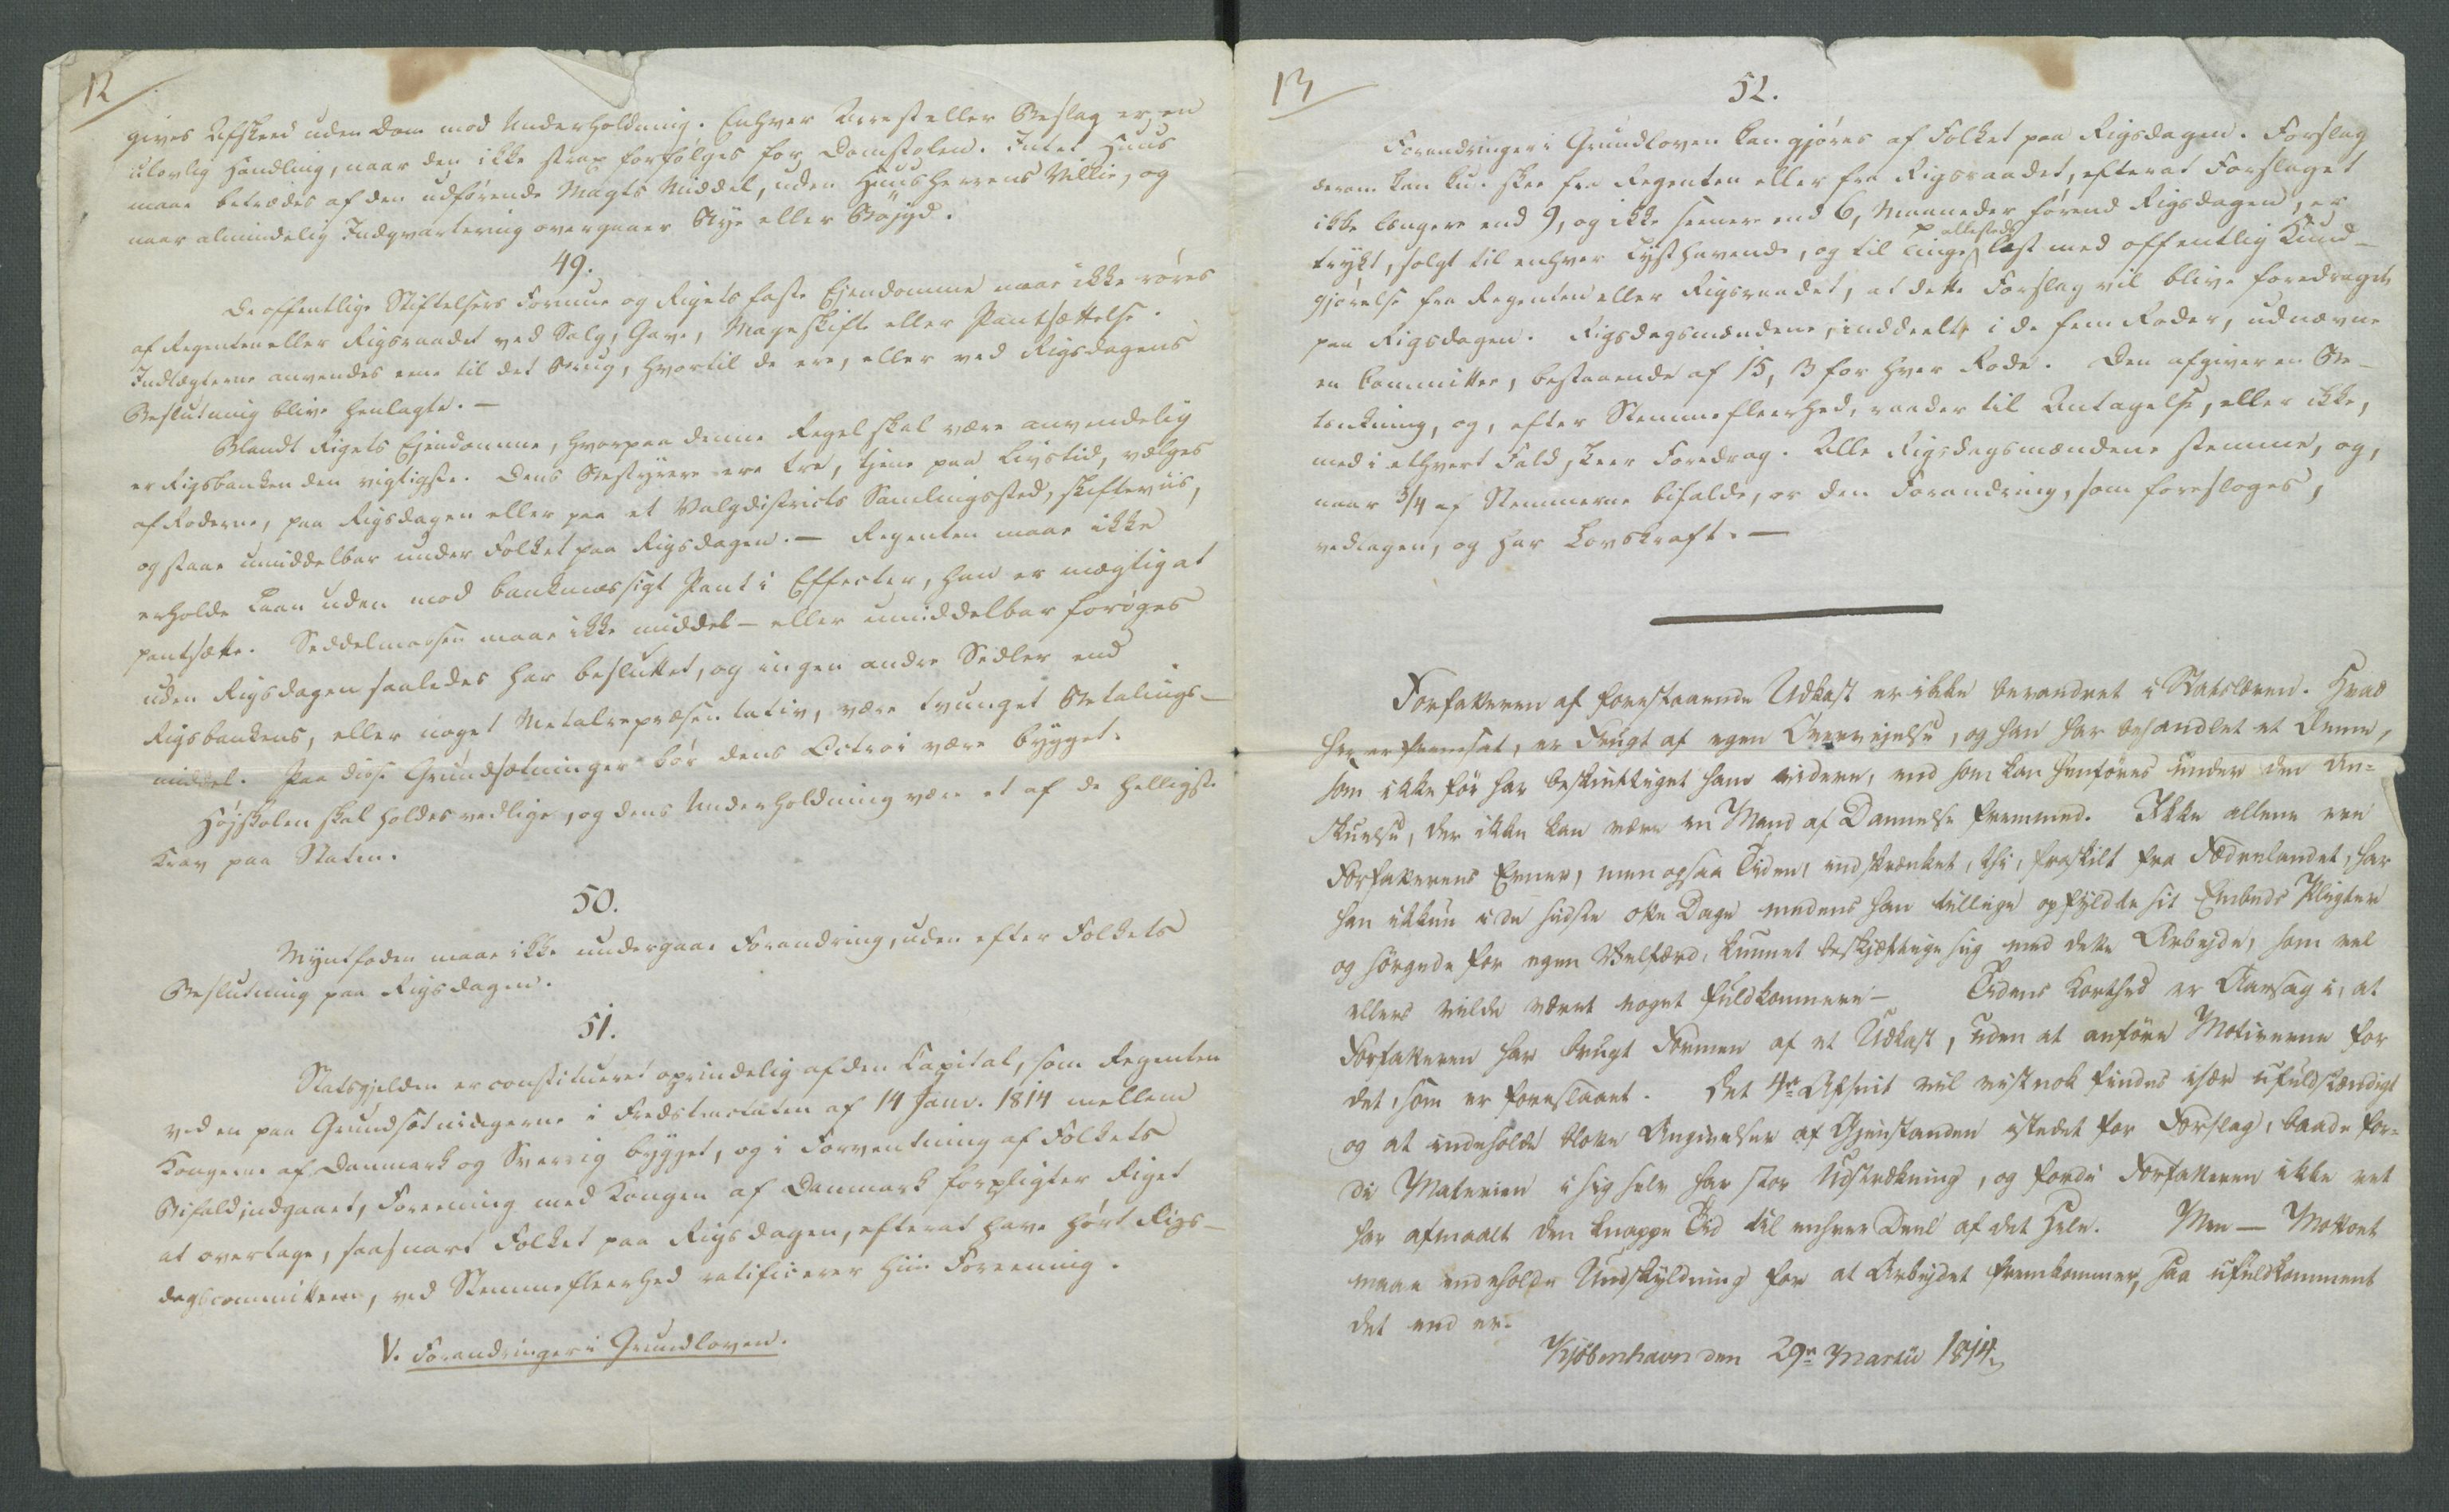 12
gives Afskeed uden Dom mod Underholdning. Enhver Arrest eller Beslag er en
ulovlig Handling, naar den ikke strax forfølges for Domstolen. Intet Huus
maae betrædes af den udførende Magts Middel, uden Huusherrens Villie, og
naar almindelig Indqvartering overgaaer Bye eller Bøigd.
49.
De offentlige Stiftelsers Formue og Rigets faste Ejendomme maae ikke røres
af Regenten eller Rigsraadet ved Salg, Gave, Mageskifte eller Pantsættelse.
Indtægterne anvendes ene til det Brug, hvortil de ere, eller ved Rigsdagens
Beslutning blive henlagte. —
Blandt Rigets Ejendomme, hvorpaa denne Regel skal være anvendelig
er Rigsbanken den vigtigste. Dens Bestyrere ere tre, tjene paa Livstid, vælges
af Roderne, paa Rigsdagen eller paa et Valgdistricts Samlingssted, skifteviis,
og staae umiddelbar under Folket paa Rigsdagen. — Regenten maae ikke
erholde Laan uden mod bankmæssigt Pant i Effecter, han er mægtig at
pantsætte. Seddelmassen maae ikke middel- eller umiddelbar forøges
uden Rigsdagen saaledes har besluttet, og ingen andre Sedler end
Rigsbankens, eller noget Metalrepræsentativ, være tvunget Betalings-
middel. Paa disse Grundsætninger bør dens Octroi være bygget.
Højskolen skal holdes vedlige, og dens Underholdning være et af de helligste
Krav paa Staten.
50.
Myntfoden maae ikke undergaae Forandring, uden efter Folkets
Beslutning paa Rigsdagen.
51.
Statsgjelden er constitueret oprindelig af den Capital, som Regenten
ved en paa Grundsætningerne i Fredstractaten af 14 Janv. 1814 mellem
Kongerne af Danmark og Sverrig bygget, og i Forventning af Folkets
Bifald indgaaet, Foreening med Kongen af Danmark forpligter Riget
at overtage, saasnart Folket paa Rigsdagen, efterat have hørt Rigs-
dagscommitteen, ved Stemmefleerhed ratificerer hiin Foreening.
V. Forandringer i Grundloven.
13
52.
Forandringer i Grundloven kan gjøres af Folket paa Rigsdagen. Forslag
derom kan kun skee fra Regenten eller fra Rigsraadet, efterat Forslaget
ikke længere end 9, og ikke senere end 6, Maaneder førend Rigsdagen, er
trykt, solgt til enhver Lysthavende, og til Tinge allesteds læst med offentlig Kund-
gjørelse fra Regenten eller Rigsraadet, at dette Forslag vil blive foredraget
paa Rigsdagen. Rigsdagsmændene, inddeelte i de fem Roder, udnævne
en Committee, bestaaende af 15, 3 for hver Rode. Den afgiver en Be-
tænkning, og, efter Stemmefleerhed, raader til Antagelse, eller ikke,
med i ethvert Fald, skeer Foredrag. Alle Rigsdagsmændene stemme, og,
naar 3/4 af Stemmerne bifalde, er den Forandring, som foresloges,
vedtagen, og har Lovskraft. —
Forfatteren af forestaaende Udkast er ikke bevandret i Statslæren. Hvad
her er fremsat, er Frugt af egen Overvejelse, og han har behandlet et Emne,
som ikke før har beskjæftiget ham videre, end som kan henføres under den An-
skuelse, der ikke kan være en Mand af Dannelse fremmed. Ikke allene ere
Forfatterens Evner, men ogsaa Tiden, indskrænket, thi, fraskilt fra Fædrelandet, har
han ikkun i de sidste otte Dage medens han tillige opfyldte sit Embeds Pligter
og sørgede for egen Velfærd, kunnet beskjæftige sig med dette Arbejde, som vel
ellers vilde været noget fuldkomnere — Tidens Korthed er Aarsag i, at
Forfatteren har brugt Formen af et Udkast, uden at anføre Motiverne for
det, som er foreslaaet. Det 4de Afsnit vil vistnok findes især ufuldstændigt
og at indeholde blotte Angivelser af Gjenstanden istedet for Forslag, baade for-
di Materien i sig selv har stor Udstrækning, og fordi Forfatteren ikke ret
har afmaalt den knappe Tid til enhver Deel af det Hele. Men — Mottoet
maae indeholde Undskyldning for at Arbejdet fremkommer, saa ufuldkomment
det end er.
Kjøbenhavn den 29de Martii 1814.